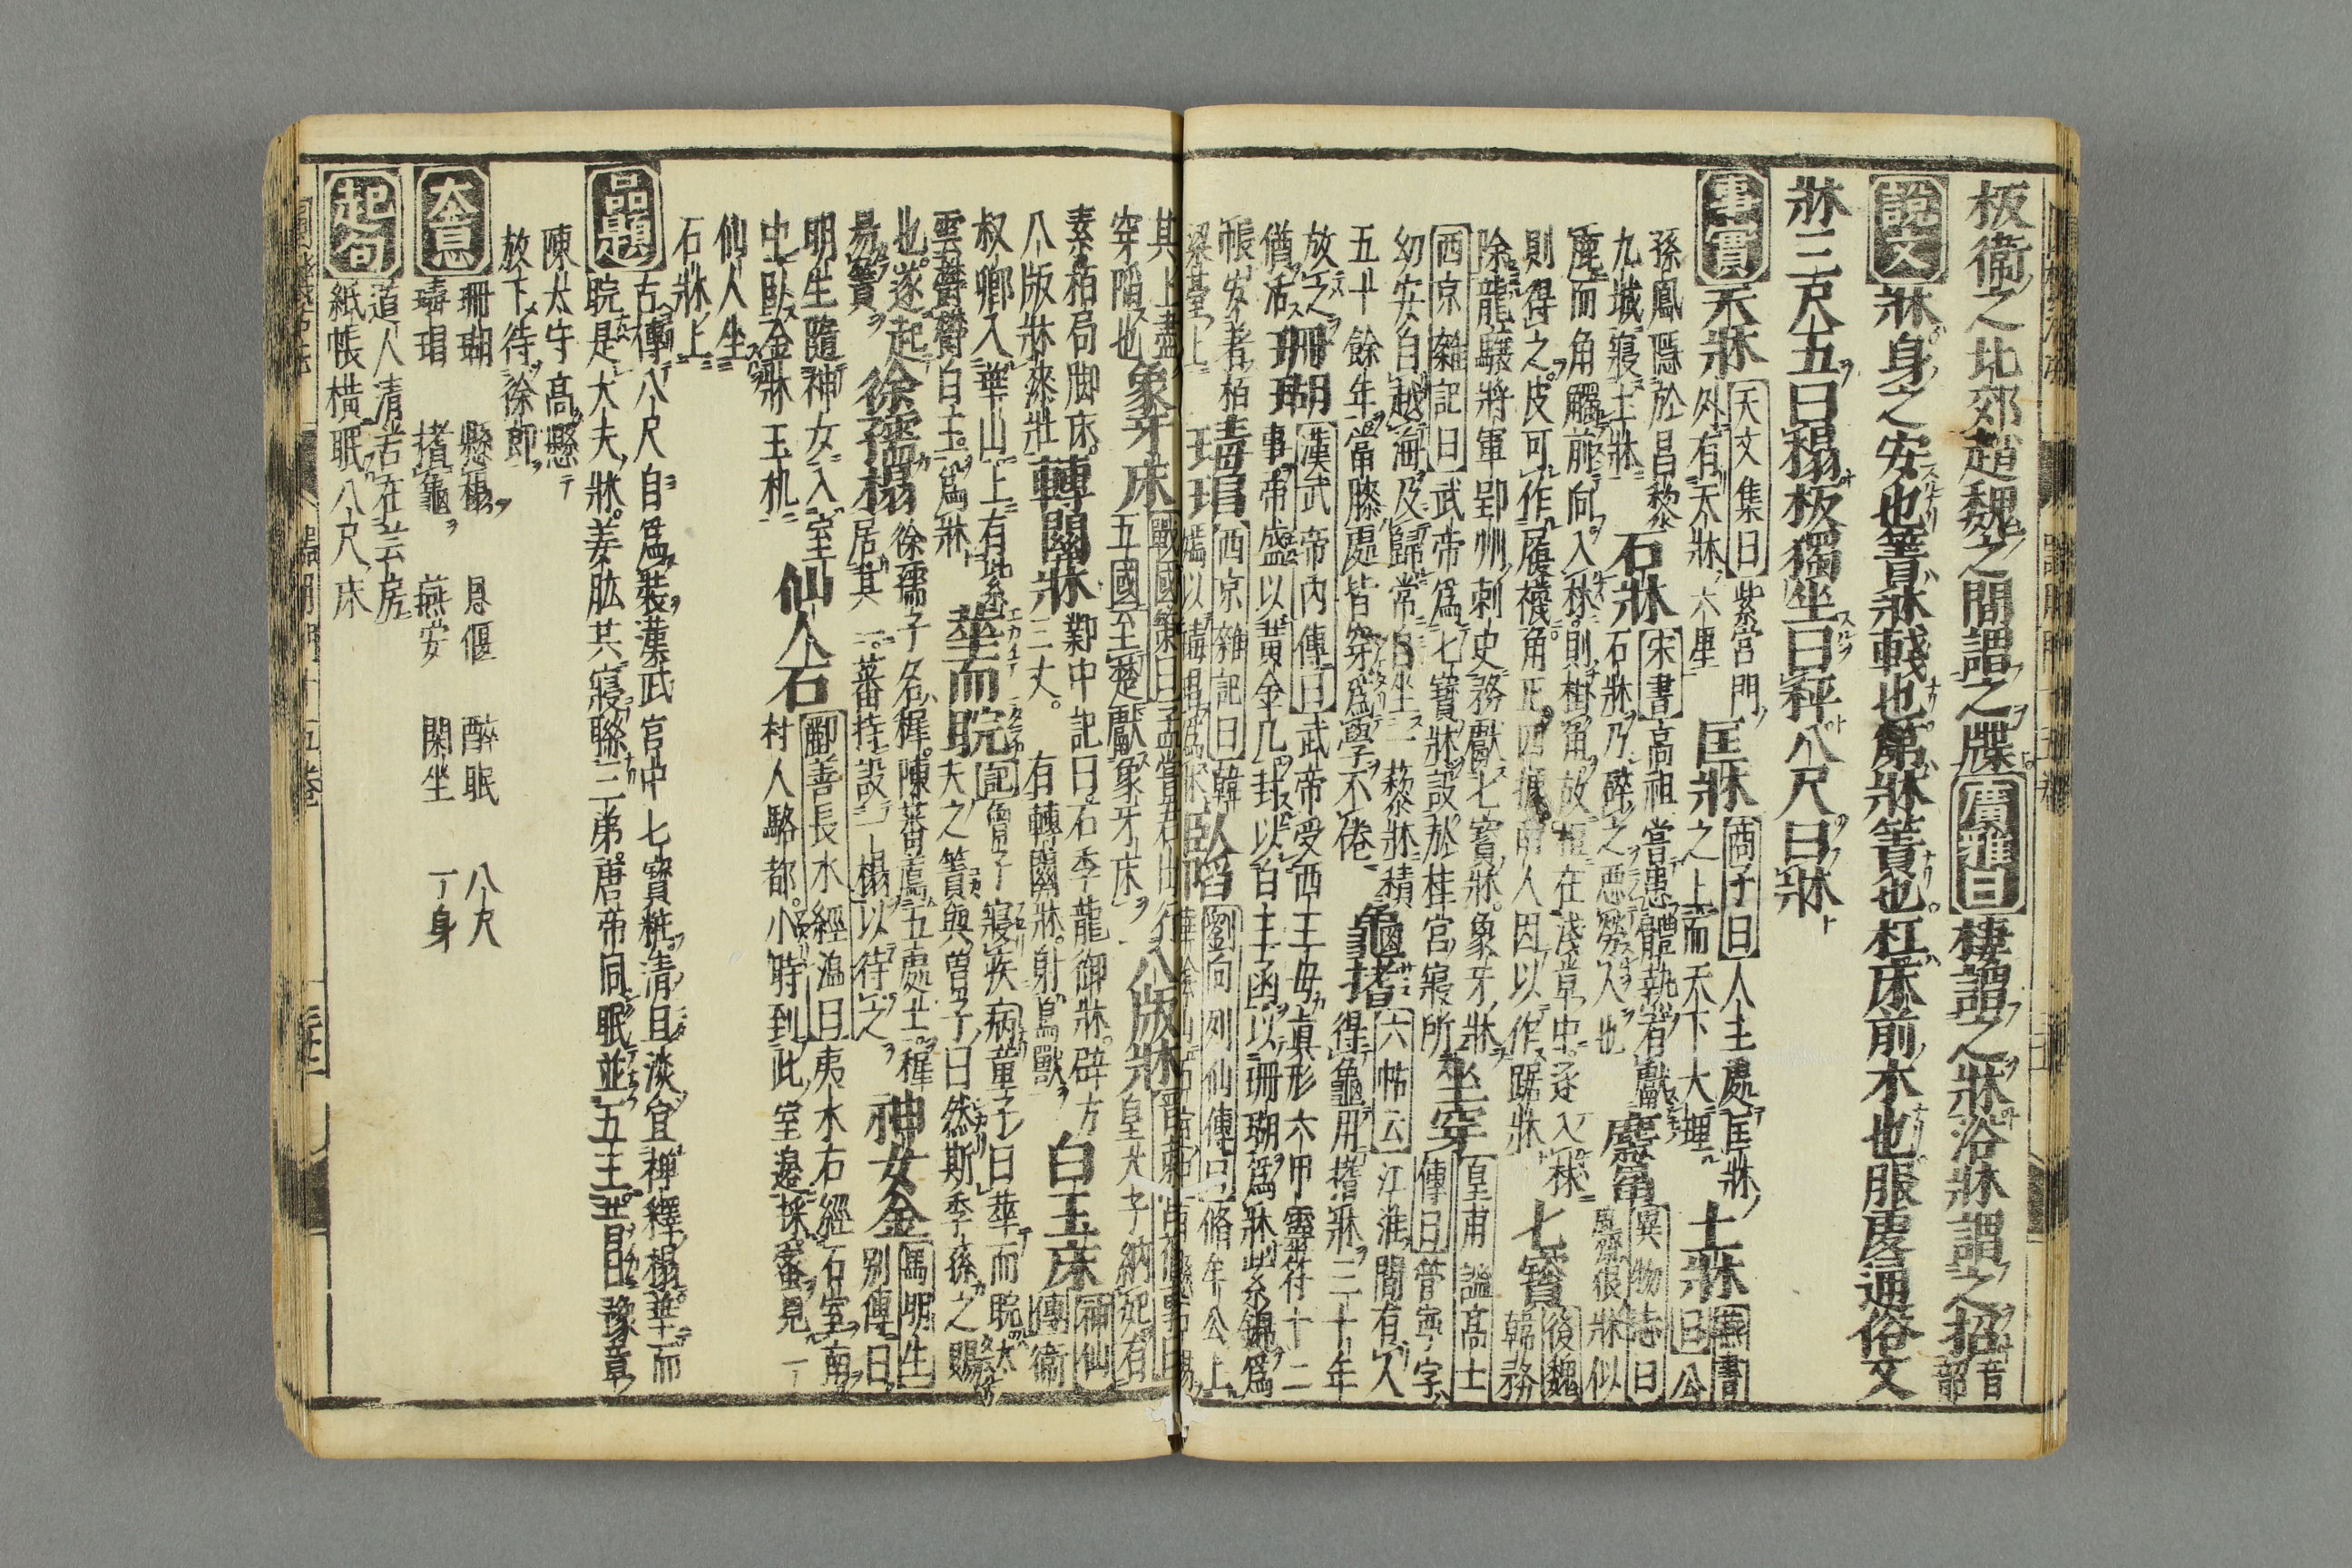 板衛之北郊趙魏之間謂之牒廣雅曰棲謂之牀浴牀謂之招音韶
說文牀身之安也簀牀棧也第牀簀也杠床前木也服虔通俗文
牀三尺五曰榻板獨坐曰枰八尺曰牀
事實
天牀
天文集曰紫宮門
外有天牀六星
匡牀
商子曰人主處匡牀
之上而天下大理
土牀
燕書曰公
孫鳳隱於昌黎
九城寢土牀
石牀
宋書高祖嘗患體熱者獻
石牀乃碎之惡勞人也
麈
異物志曰
麈狼牀似
鹿而角觸前向入林則樹角故在淺草中逐入林
則得之皮可作履襪角正四據南人因以作踞牀
七寶
後魏
韓務
除龍驤將軍郢州刺史務獻七寶牀象牙牀
西京雜記曰武帝為七寶牀設於桂宮寢所
坐穿
皇甫謐高士
傳曰管寧字
幼安自越海及歸常自坐一藜牀積
五十餘年當膝處皆穿為學不倦
龜搘
六帖云江淮間有人
得龜用搘牀三十年
放之
猶活
珊瑚
漢武帝內傳曰武帝受西王母真形六甲靈符十二
事帝盛以黃金几封以白玉函以珊瑚為牀紫錦為
帳安著栢
梁臺上
瑇瑁
西京雜記曰韓
嫣以瑇瑁為床
臥陷
劉向列仙傳曰脩羊公上
其上盡
穿陷也
象牙床
戰國策曰孟嘗君出行
五國至楚獻象牙床
八版牀
皇太子納妃有
素栢局脚床
八版牀漆牀
轉關牀
鄴中記曰石季龍御牀辟方
三丈有轉關牀射鳥獸
白玉床
神仙
傳衛
叔卿入華山上有紫
雲鬱鬱白玉為牀
華而睆
記曾子寢疾病童子曰華而睆大
夫之簀與曾子曰然斯季孫之賜
也遂起
易簀
徐孺榻
徐孺子名稺陳蕃薦五處士稺
居其一蕃特設一榻以待之
神女金
馬明生
別傳曰
明生隨神女入室
中臥金牀玉机
仙人石
酈善長水經溫曰夷水右經石室南
村人駱都小時到此室邊採蜜見一
仙人坐
石牀上
品題
古傳八尺自為裝漢武宮中七寶粧清且淡宜禪釋榻華而
睆是大夫牀姜肱共寢聯三弟唐帝同眠並五王豫章
陳太守高懸
放下待徐郎
大意
珊瑚懸榻息偃醉眠八尺
瑇瑁搘龜燕安閑坐一身
起句
道人清苦在芸房
紙帳橫眠八尺床